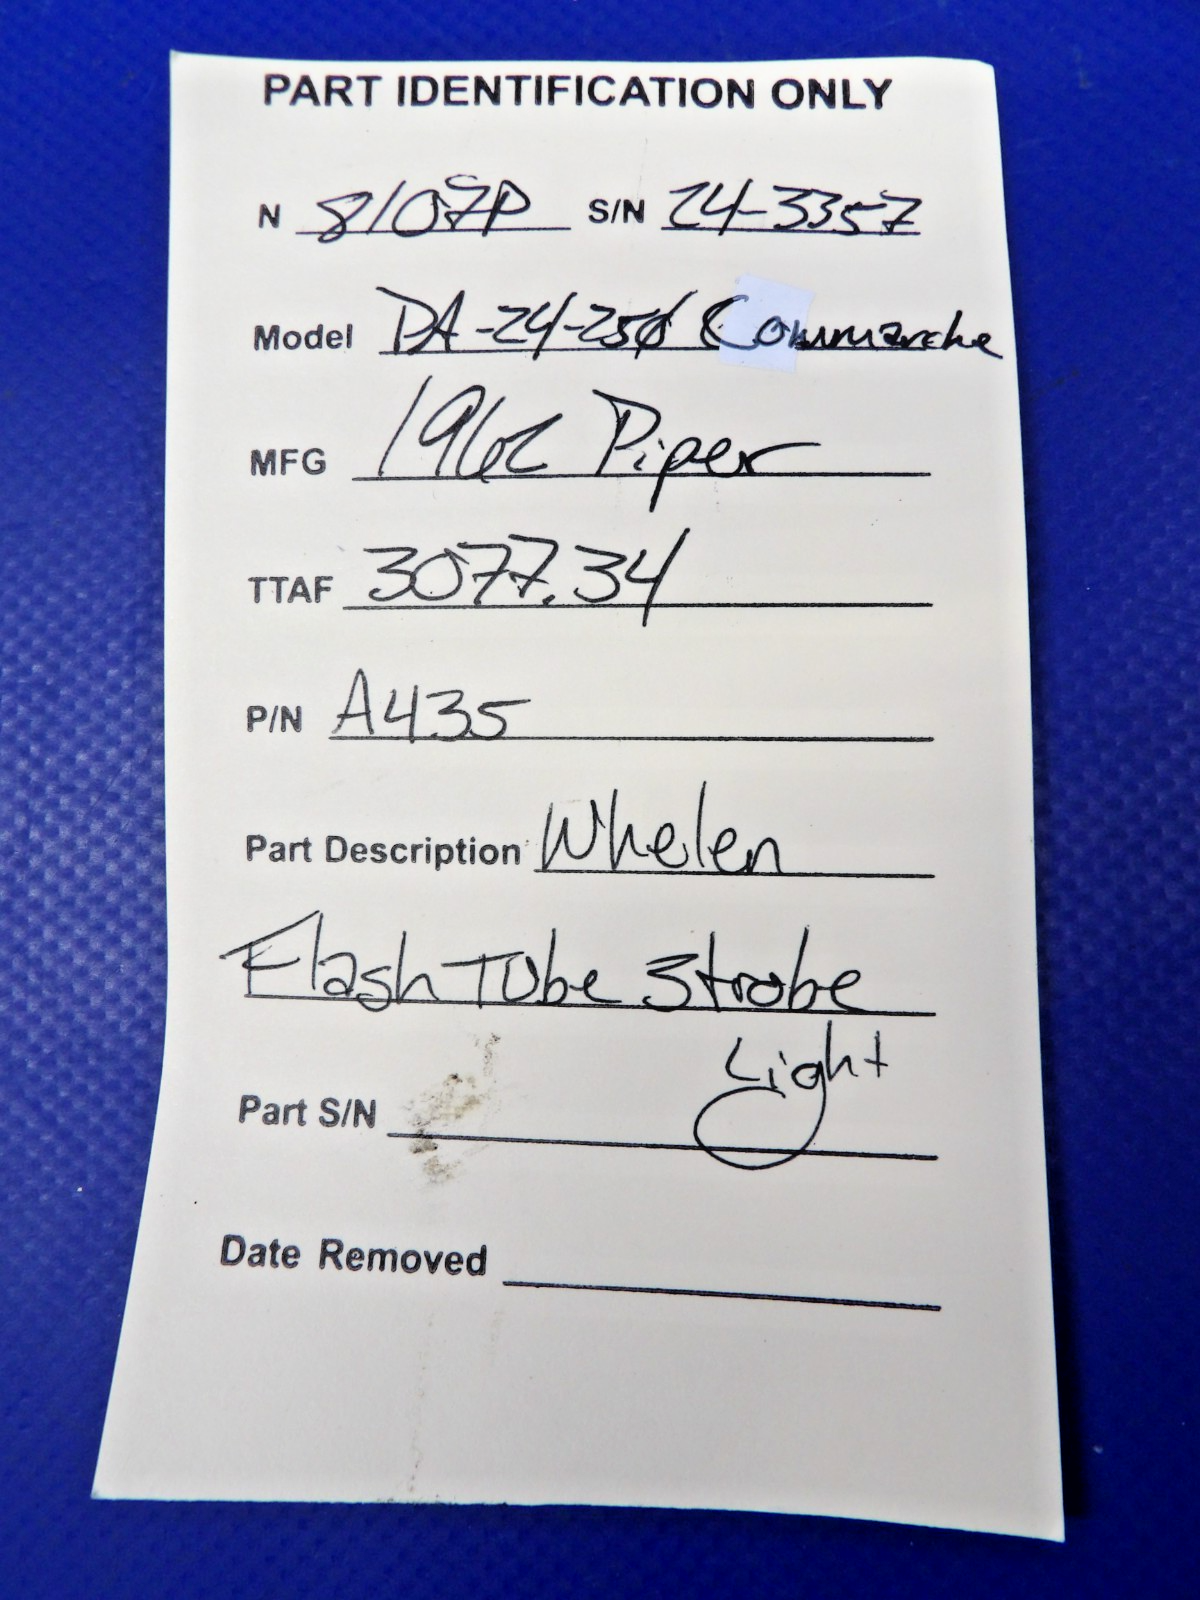 PART IDENTIFICATION ONLY
N 8107P S/N 24-3357
Model PA-24-250 Commanche
MFG 1962 Piper
TTAF 3077.34
P/N A435
Part Description Whelen
Flash Tube Strobe
Light
Part S/N
Date Removed